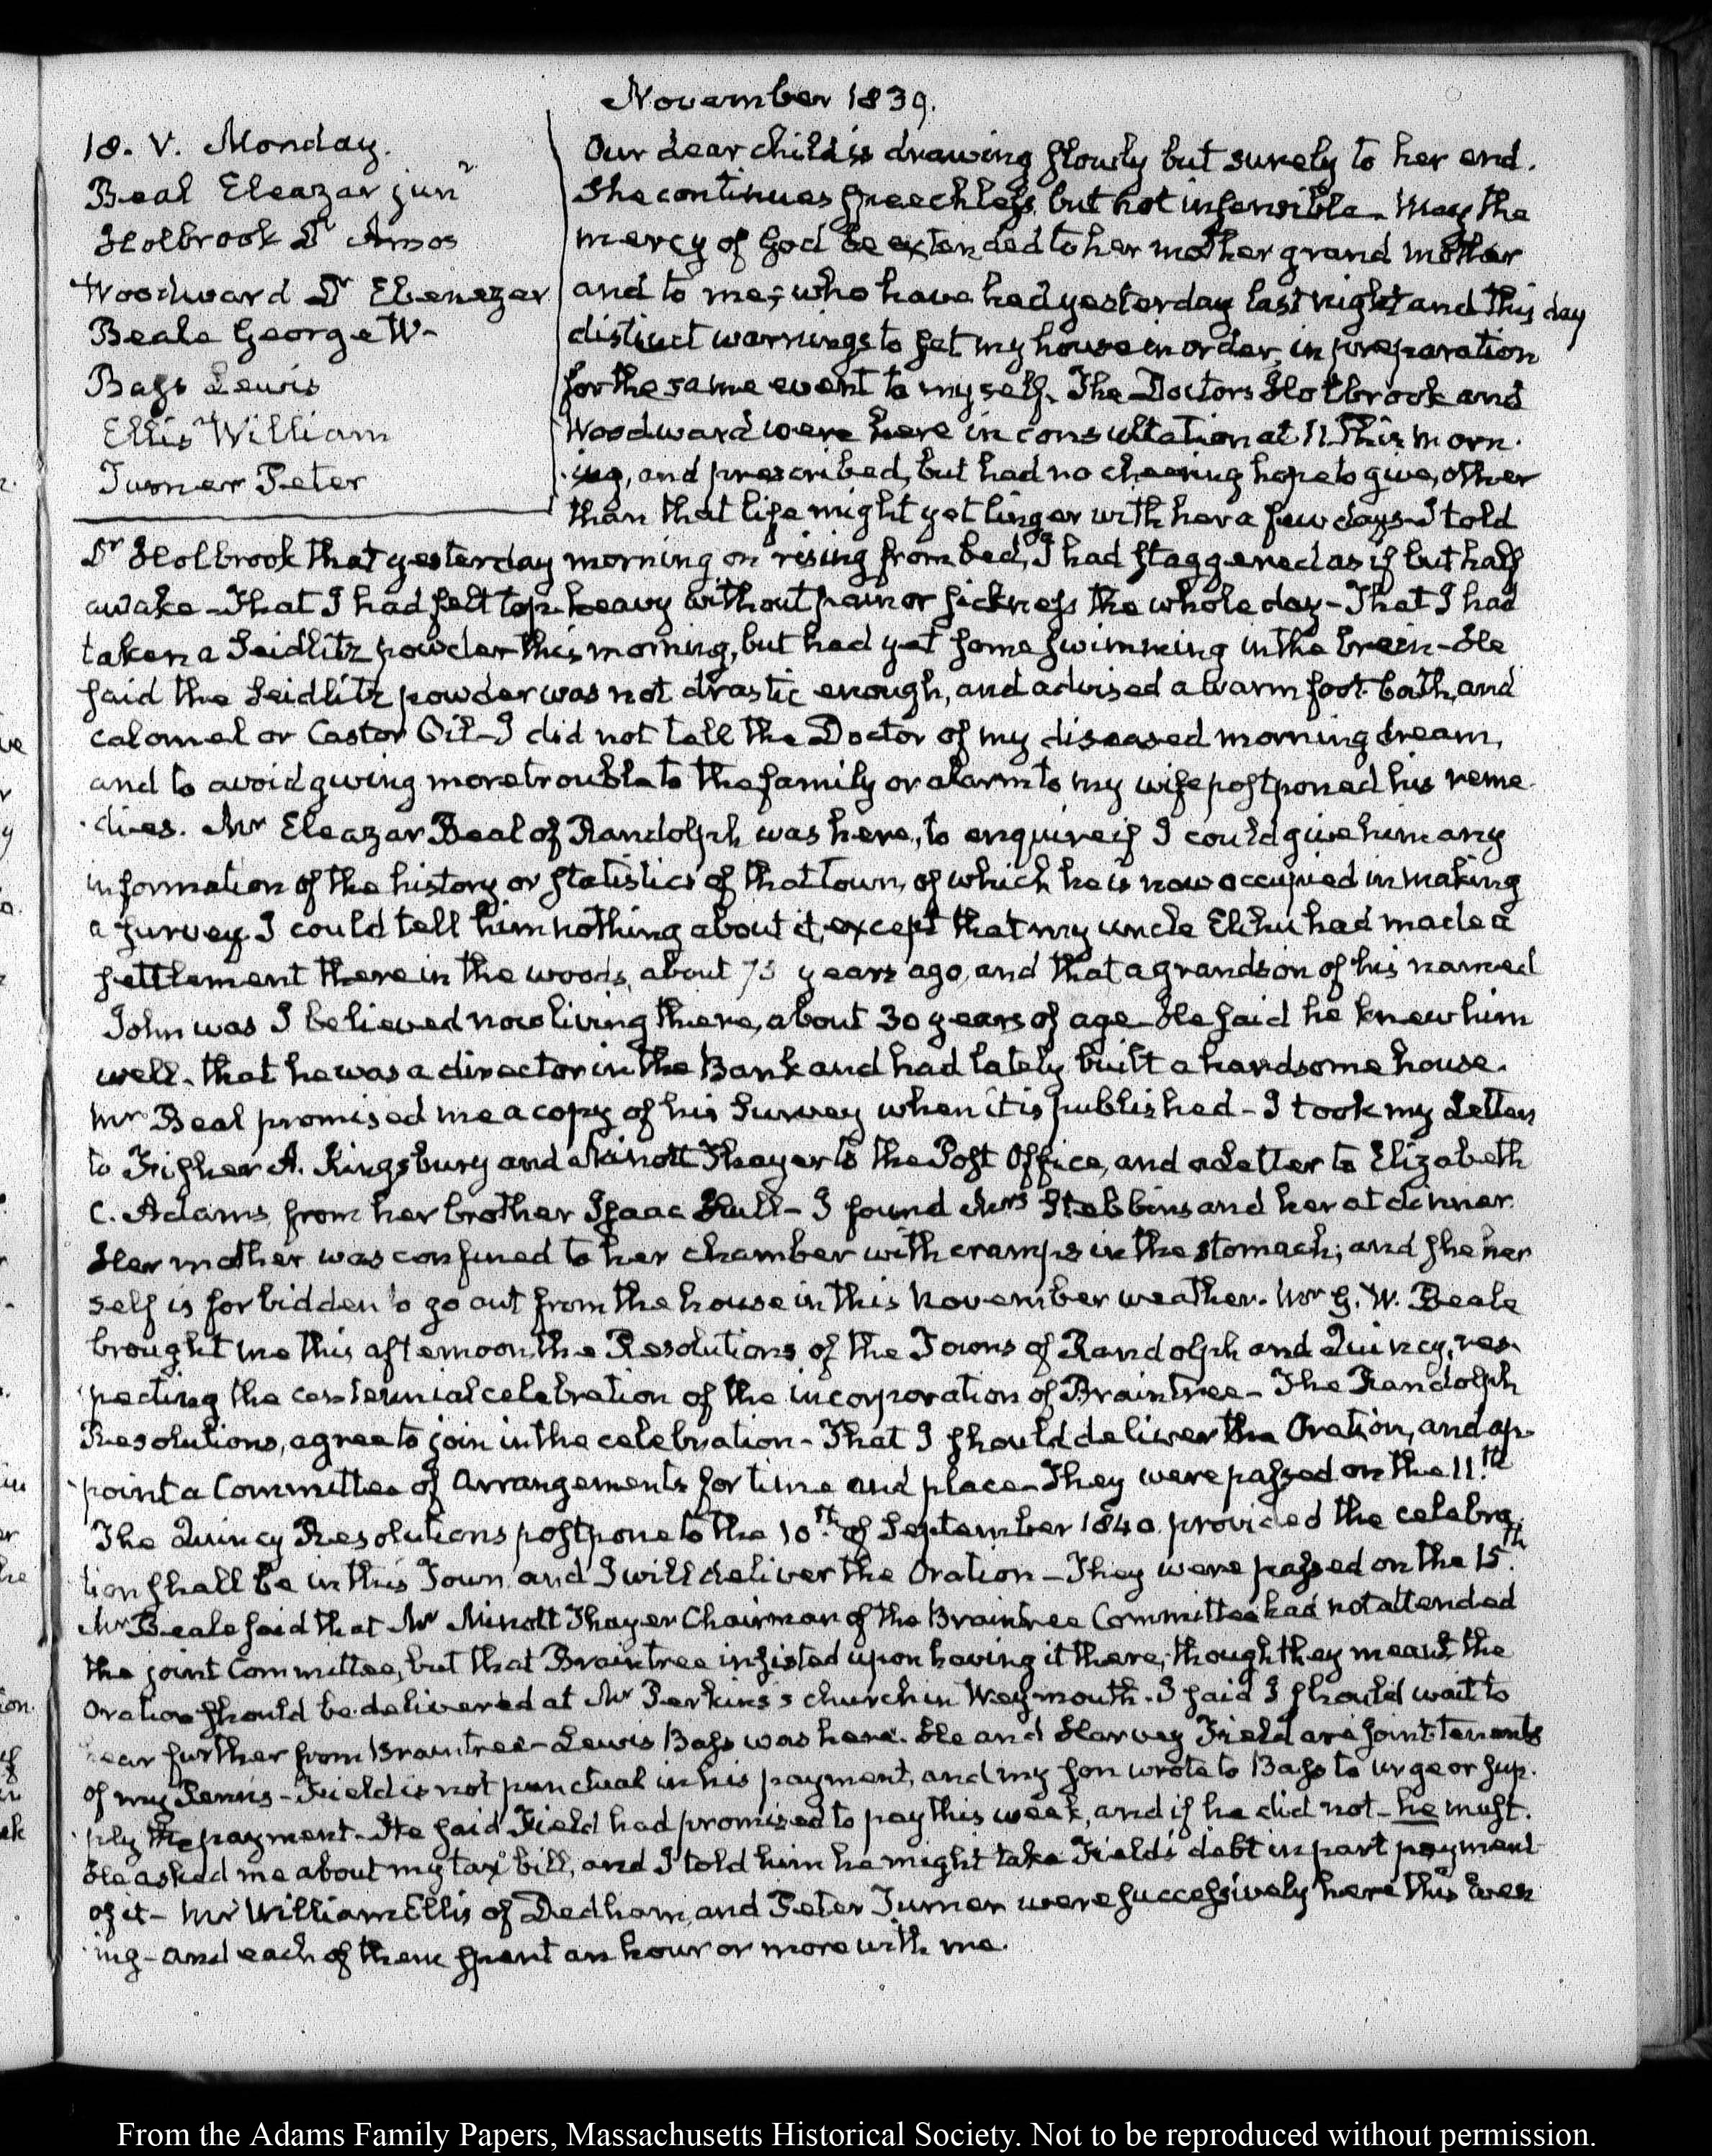 November 1839.
18. V. Monday.
Beal Eleazar junr
Holbrook Dr Amos
Woodward Dr Ebenezer
Beale George W-
Bass Lewis
Ellis William
Turner Peter
Our dear child is drawing slowly but surely to her end.
She continues speechless, but not insensible. May the
mercy of God be extended to her mother grand mother
and to me, who have had yesterday last night and this day
distinct warnings to set my house in order, in preparation
for the same event to myself. The Doctors Holbrook and
Woodward were here in consultation at 11. This morn-
ing, and prescribed, but had no cheering hope to give, other
than that life might yet linger with her a few days- I told
Dr Holbrook that yesterday morning on rising from bed, I had staggered as if but half
awake- That I had felt top-heavy without pain or sickness the whole day- That I had
taken a Seidlitz powder this morning, but had yet some swimming in the brain- He
said the Seidlitz powder was not drastic enough, and advised a warm foot-bath, and
calomel or Castor Oil- I did not tell the Doctor of my diseased morning dream,
and to avoid giving more trouble to the family or alarm to my wife postponed his reme-
dies. Mr Eleazar Beal of Randolph was here, to enquire if I could give him any
information of the history or statistics of that town, of which he is now occupied in making
a survey. I could tell him nothing about it, except that my uncle Elihu had made a
settlement there in the woods, about 75 years ago, and that a grandson of his named
John was I believed now living there, about 30 years of age- He said he knew him
well. that he was a director in the Bank and had lately built a handsome house.
Mr Beal promised me a copy of his Survey when it is published- I took my Letters
to Fisher A. Kingsbury and Minott Thayer to the Post Office, and a Letter to Elizabeth
C. Adams from her brother Isaac Hull- I found Mrs Stebbins and her at dinner.
Her mother was confined to her chamber with cramps in the stomach; and she her
self is forbidden to go out from the house in this November weather. Mr G. W. Beale
brought me this afternoon the Resolutions of the Towns of Randolph and Quincy, res-
pecting the centennial celebration of the incorporation of Braintree- The Randolph
Resolutions, agree to join in the celebration- That I should deliver the Oration, and ap-
point a Committee of Arrangements for time and place- They were passed on the 11th
The Quincy Resolutions postpone to the 10th of September 1840 provided the celebra-
tion shall be in this Town and I will deliver the Oration- They were passed on the 15th
Mr Beale said that Mr Minott Thayer Chairman of the Braintree Committee had not attended
the joint Committee, but that Braintree insisted upon having it there; though they meant the
Oration should be delivered at Mr Perkins's church in Weymouth. I said I should wait to
hear further from Braintree- Lewis Bass was here. He and Harvey Field are joint tenants
of my - Field is not punctual in his payment, and my son wrote to Bass to urge or sup-
ply the payment. He said Field had promised to pay this week, and if he did not- he must.
He asked me about my tax bill, and I told him he might take Field's debt in part payment
of it- Mr William Ellis of Dedham, and Peter Turner were successively here this even
ing- and each of them spent an hour or more with me.
From the Adams Family Papers, Massachusetts Historical Society. Not to be reproduced without permission.